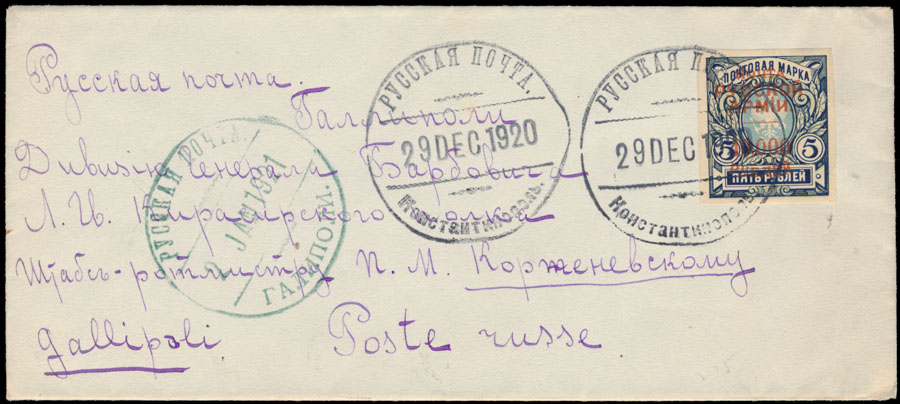 Русская почта.
Галлиполи
Дивизiю Генерала Барбовича
Л. Гв. Кирасирского полка
Штабсъ-ротмистру П. М. Корженевскому
Gallipoli. Poste russe
РУССКАЯ ПОЧТА.
29 DEC 1920
Константинополь.
РУССКАЯ П
29 DEC 1
Константинополь
РУССКАЯ ПОЧТА.
2 JAN 1921
ГАЛЛИПОЛИ.
ПОЧТОВАЯ МАРКА
РУССКОЙ
АРМIИ
5 5
10.000
ПЯТЬ РУБЛЕЙ